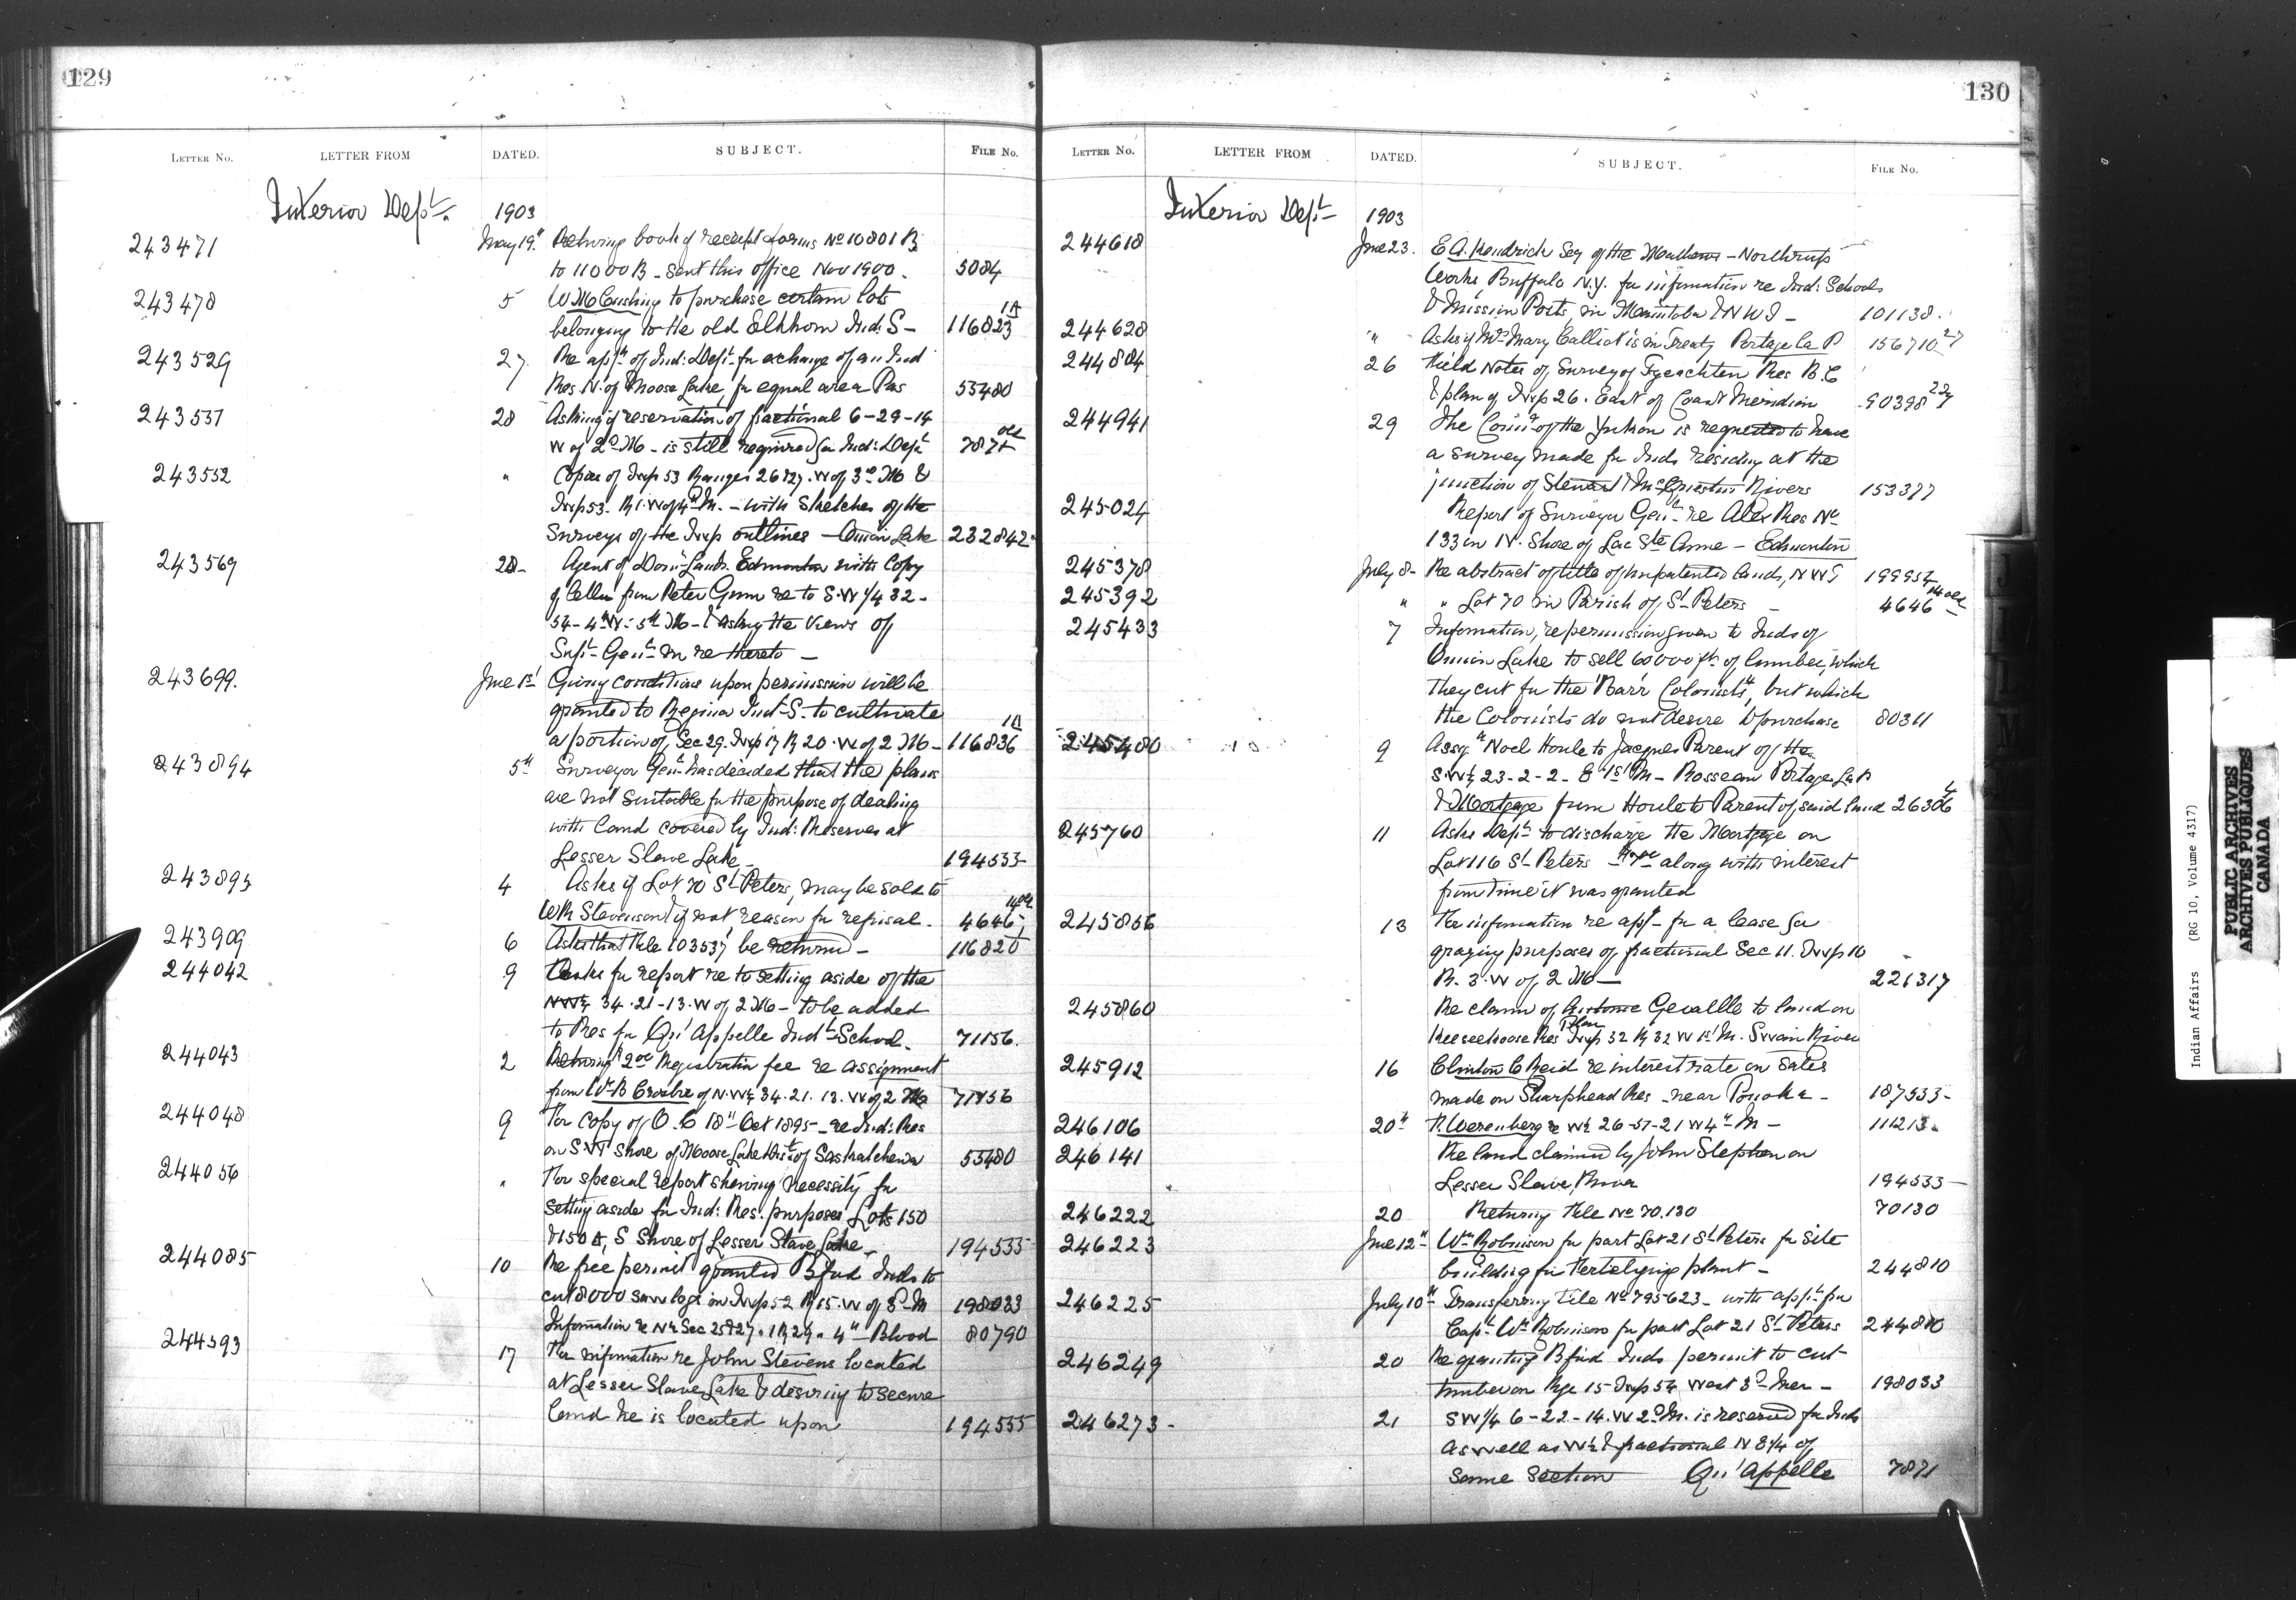 129
LETTER No. LETTER FROM DATED. SUBJECT. FILE No.
Interior Dept. 1903
243471 May 19" Returning book of receipt forms No 10801 B
to 11000 B - sent this office Nov 1900. 5084
243478 5 W M Cushing to purchase certain lots
belonging to the old Elkhorn Ind: S - 116823 1A
243529 27 Re appn of Ind: Dept. for exchange of an Ind
Res N. of Moose Lake, for equal area Pas 53480
243537 28 Asking if reservation of fractional 6-29-14
W of 2d M - is still required for Ind: Dept 7871 old
243552 " Copies of Twp 53 Ranges 26 & 27. W of 3d M &
Twp 53. R 1. W of 4th M. - with Sketches of the
Surveys of the Twp outlines - Onion Lake 232842
243569 28 - Agent of Domn Lands Edmonton with Copy
of letter from Peter Gunn re to S.W 1/4 32 -
54 - 4 W - 5th M - & asking the views of
Supt Genl in re thereto -
243699. June 1st Giving conditions upon permission will be
granted to Regina Ind. S. to cultivate
a portion of Sec 29. Twp 17 R 20. W of 2 M - 116836 1A
243894 5th Surveyor Genl has decided that the plans
are not suitable for the purpose of dealing
with land covered by Ind: Reserves at
Lesser Slave Lake - 194533
243895 4 Asks if Lot 70 St Peters, may be sold to
W R Stevenson & if not reason for refusal. 4646 14 old
243909 6 Asks that File 103537 be returned - 116820
244042 9 Asks for report re to setting aside of the
NW¼ 34.21-13.W of 2 M - to be added
to Res for Qu'Appelle Indl School. 71156.
244043 2 Returning 2 00 Registration fee re assignment
from W.B. of N.W¼ 34.21.13.W of 2 M 71156
244048 9 For copy of O.C 18th Oct 1895 - re Ind: Res
on S.W Shore of Moose Lake Dist. of Saskatchewan 53480
244056 " For special report showing necessity for
setting aside for Ind: Res. purposes Lots 150
& 150 A, S Shore of Lesser Slave Lake - 194533
244085 10 Re free permit granted Bfd Inds to
cut 8000 saw logs in Twp 52 R 15. W of 3d M 198033
Information re N½ Sec 25 & 27. 1 R 29. 4th Blood 80790
244393 17 For information re John Stevens located
at Lesser Slave Lake & desiring to secure
land he is located upon 194533
130
LETTER No. LETTER FROM DATED. SUBJECT. FILE No.
Interior Dept 1903
244618 June 23. E A. Kendrick Secy of the Matthews - Northrup
Works, Buffalo N.Y. for information re Ind: Schools
& Mission Posts, in Manitoba & N W T - 101138.
244628 " Asks if Mrs Mary Calliot is in Treaty Portage la P 156710 27
244804 26 Field Notes of Survey of Tyeachten Res B.C
& plan of Twp 26. East of Coast Meridian 90398 22
244941 29 The Comr of the Yukon is requested to have
a survey made for Inds residing at the
junction of Stewart & McQuesten Rivers 153377
245024 Report of Surveyor Genl re Alex Res No
133 in N. Shore of Lac Ste Anne - Edmonton
245378 July 8 - Re abstract of title of unpatented lands, N W T 199952
245392 " " Lot 70 in Parish of St Peters - 4646 14 old
245433 7 Information, re permission given to Inds of
Onion Lake to sell 60000 ft. of lumber, which
they cut for the "Barr Colonists", but which
the Colonists do not desire to purchase 80311
245480 9 Assgt Noel Houle to Jacques Parent of the
S.W¼ 23-2-2-E 1st M - Rosseau Portage La P.
& Mortgage from Houle to Parent of said land 26306 4
245760 11 Asks Dept to discharge the Mortgage on
Lot 116 St Peters along with interest
from time it was granted
245856 13 For information re appn for a lease for
grazing purposes of fractional Sec 11. Twp 10
R. 3. W of 2 M - 221317
245860 Re claim of Antoine Genaille to land on
Keeseekoose Res Plan Twp 32 R 32 W 1st M. Swan River
245912 16 Clinton C Reid re interest rate on Sales
made on Sharphead Res - near Ponoka - 187533 -
246106 20th P. Werenberg re W½ 26-57-21 W 4th M - 111213.
246141 Re land claimed by John Stephen on
Lesser Slave River 194533 -
246222 20 Returning File No 70.130 70130
246223 June 12th Wm Robinson for part Lot 21 St Peters for site
building for Fertelizing plant - 244810
246225 July 10th Transferring File No 795623 - with appn for
Capt. Wm Robinson for part Lot 21 St Peters 244810
246249 20 Re granting Bfd Inds permit to cut
timber on Rge 15 Twp 54 West 3d Mer - 198033
246273 - 21 SW 1/4 6-22-14. W 2d M. is reserved for Inds
as well as W½ & fractional N E 1/4 of
same section Qu'Appelle 7871
Indian Affairs (RG 10, Volume 4317)
PUBLIC ARCHIVES
ARCHIVES PUBLIQUES
CANADA